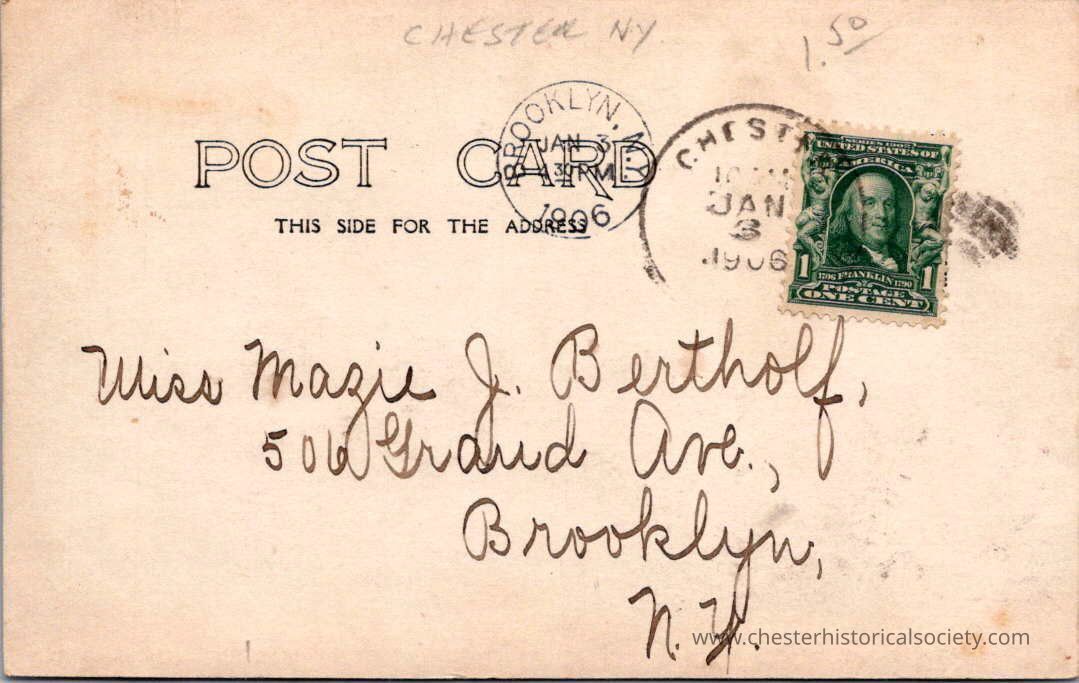 CHESTER NY
1.50
POST CARD
THIS SIDE FOR THE ADDRESS
BROOKLYN, N.Y.
JAN 3
30 PM
1906
CHESTER
JAN
3
1906
SERIES 1902
UNITED STATES OF
AMERICA
1 1706 FRANKLIN 1790 1
POSTAGE
ONE CENT
Miss Mazie J. Bertholf,
506 Grand Ave.,
Brooklyn,
N.Y.
www.chesterhistoricalsociety.com